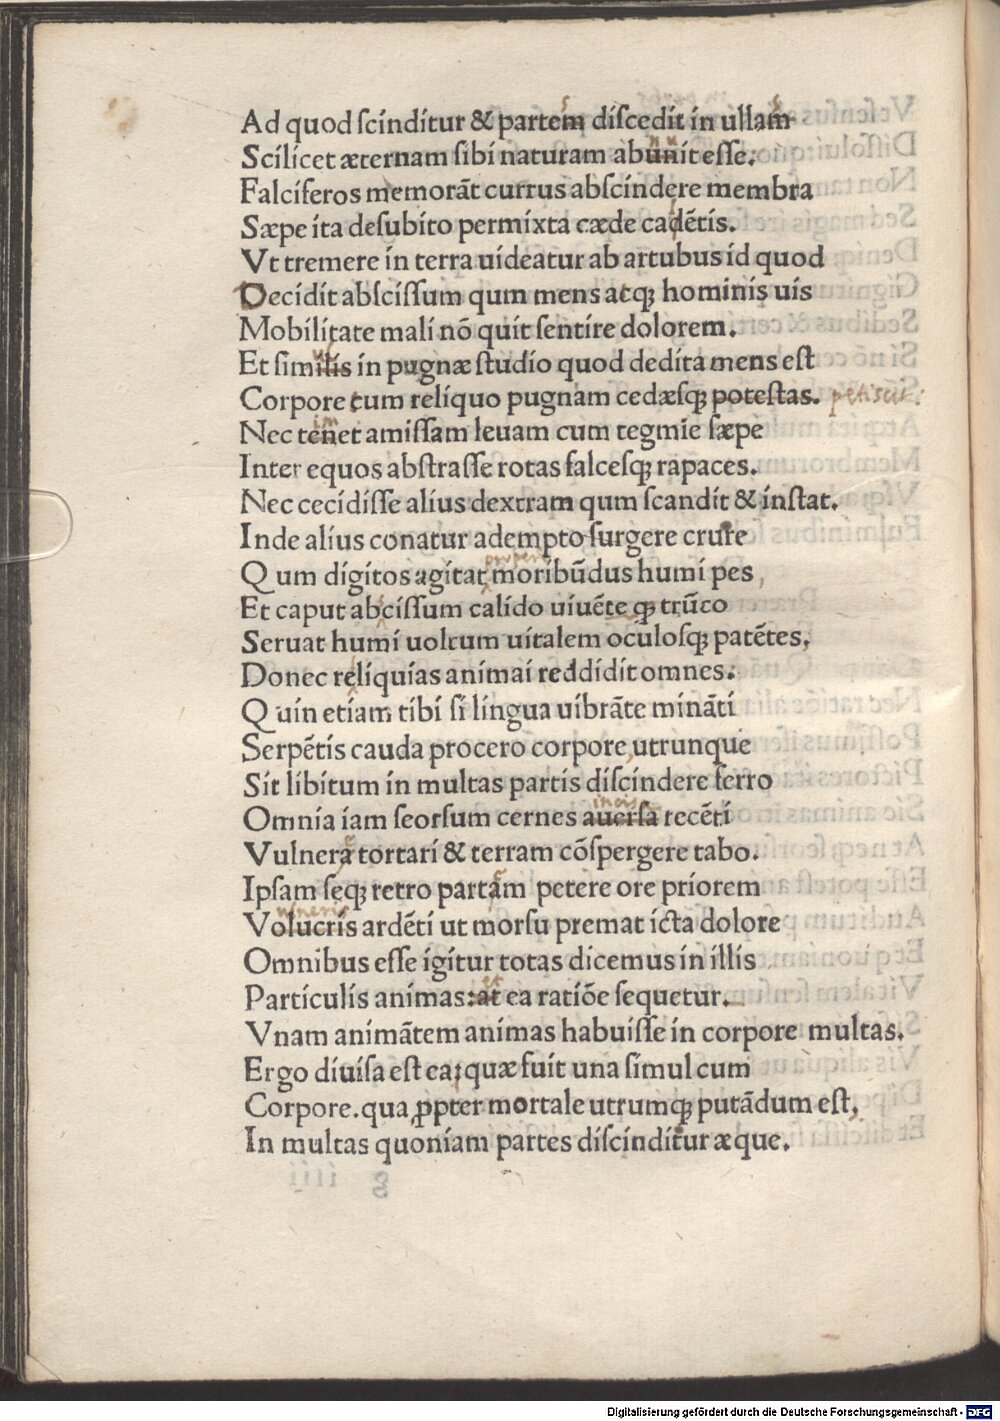 Ad quod ſcinditur & partem diſcedit in ullam
Scilicet æternam ſibi naturam abunit eſſe.
Falciferos memorāt currus abſcindere membra
Sæpe ita deſubito permixta cæde cadētis.
Vt tremere in terra uideatur ab artubus id quod
Decidit abſciſſum qum mens atqꝫ hominis uis
Mobilitate mali nō quit ſentire dolorem.
Et similis in pugnæ ſtudio quod dedita mens eſt
Corpore cum reliquo pugnam cedæſqꝫ poteſtas. petiscit:
Nec tenet amiſſam leuam cum tegmie ſæpe
Inter equos abſtraſſe rotas falceſqꝫ rapaces.
Nec cecidiſſe alius dextram qum ſcandit & inſtat.
Inde alius conatur adempto ſurgere crure
propere
Q um digitos agitat moribūdus humi pes
Et caput abciſſum calido uiuēte qꝫ trūco
Seruat humi uoltum uitalem oculoſqꝫ patētes,
Donec reliquias animai reddidit omnes:
Q uin etiam tibi ſi lingua uibrāte mināti
Serpētis cauda procero corpore utrunque
Sit libitum in multas partis diſcindere ferro
incis
Omnia iam ſeorſum cernes auerſa recēti
Vulnera tortari & terram cōſpergere tabo.
Ipſam ſeqꝫ retro partam petere ore priorem
uulneris
Volucris ardēti ut morſu premat icta dolore
Omnibus eſſe igitur totas dicemus in illis
Particulis animas: at ea ratiōe ſequetur.
Vnam animātem animas habuiſſe in corpore multas.
Ergo diuiſa eſt ea; quæ fuit una ſimul cum
Corpore. qua ꝓpter mortale utrumqꝫ putādum eſt,
In multas quoniam partes diſcinditur æque.
Digitalisierung gefördert durch die Deutsche Forschungsgemeinschaft - DFG